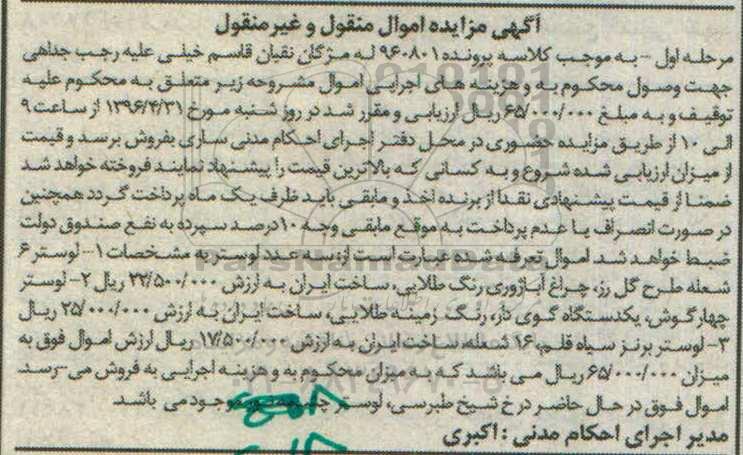 آگهی مزایده اموال منقول و غیر منقول
مرحله اول - به موجب کلاسه پرونده ۹۶۰۸۰۱ له مژگان نقیان قاسم خیلی علیه رجب جداهی
جهت وصول محکوم به و هزینه های اجرایی اموال مشروحه زیر متعلق به محکوم علیه
توقیف و به مبلغ ۶۵/۰۰۰/۰۰۰ ریال ارزیابی و مقرر شد در روز شنبه مورخ ۱۳۹۶/۴/۳۱ از ساعت ۹
الی ۱۰ از طریق مزایده حضوری در محل دفتر اجرای احکام مدنی ساری بفروش برسد و قیمت
از میزان ارزیابی شده شروع و به کسانی که بالاترین قیمت را پیشنهاد نمایند فروخته خواهد شد
ضمنا از قیمت پیشنهادی نقدا از برنده اخذ و مابقی باید ظرف یک ماه پرداخت گردد همچنین
در صورت انصراف یا عدم پرداخت به موقع مابقی وجه ۱۰درصد سپرده به نفع صندوق دولت
ضبط خواهد شد اموال تعرفه شده عبارت است از: سه عدد لوستر به مشخصات ۱- لوستر ۶
شعله طرح گل رز، چراغ آباژوری رنگ طلایی، ساخت ایران به ارزش ۲۲/۵۰۰/۰۰۰ ریال ۲- لوستر
چهارگوش، یکدستگاه گوی دار، رنگ زمینه طلایی، ساخت ایران به ارزش ۲۵/۰۰۰/۰۰۰ ریال
۳- لوستر برنز سیاه قلم، ۱۶ شعله، ساخت ایران به ارزش ۱۷/۵۰۰/۰۰۰ ریال ارزش اموال فوق به
میزان ۶۵/۰۰۰/۰۰۰ ریال می باشد که به میزان محکوم به و هزینه اجرایی به فروش می-رسد.
اموال فوق در حال حاضر در خ شیخ طبرسی، لوستر موجود می باشد.
مدیر اجرای احکام مدنی : اکبری